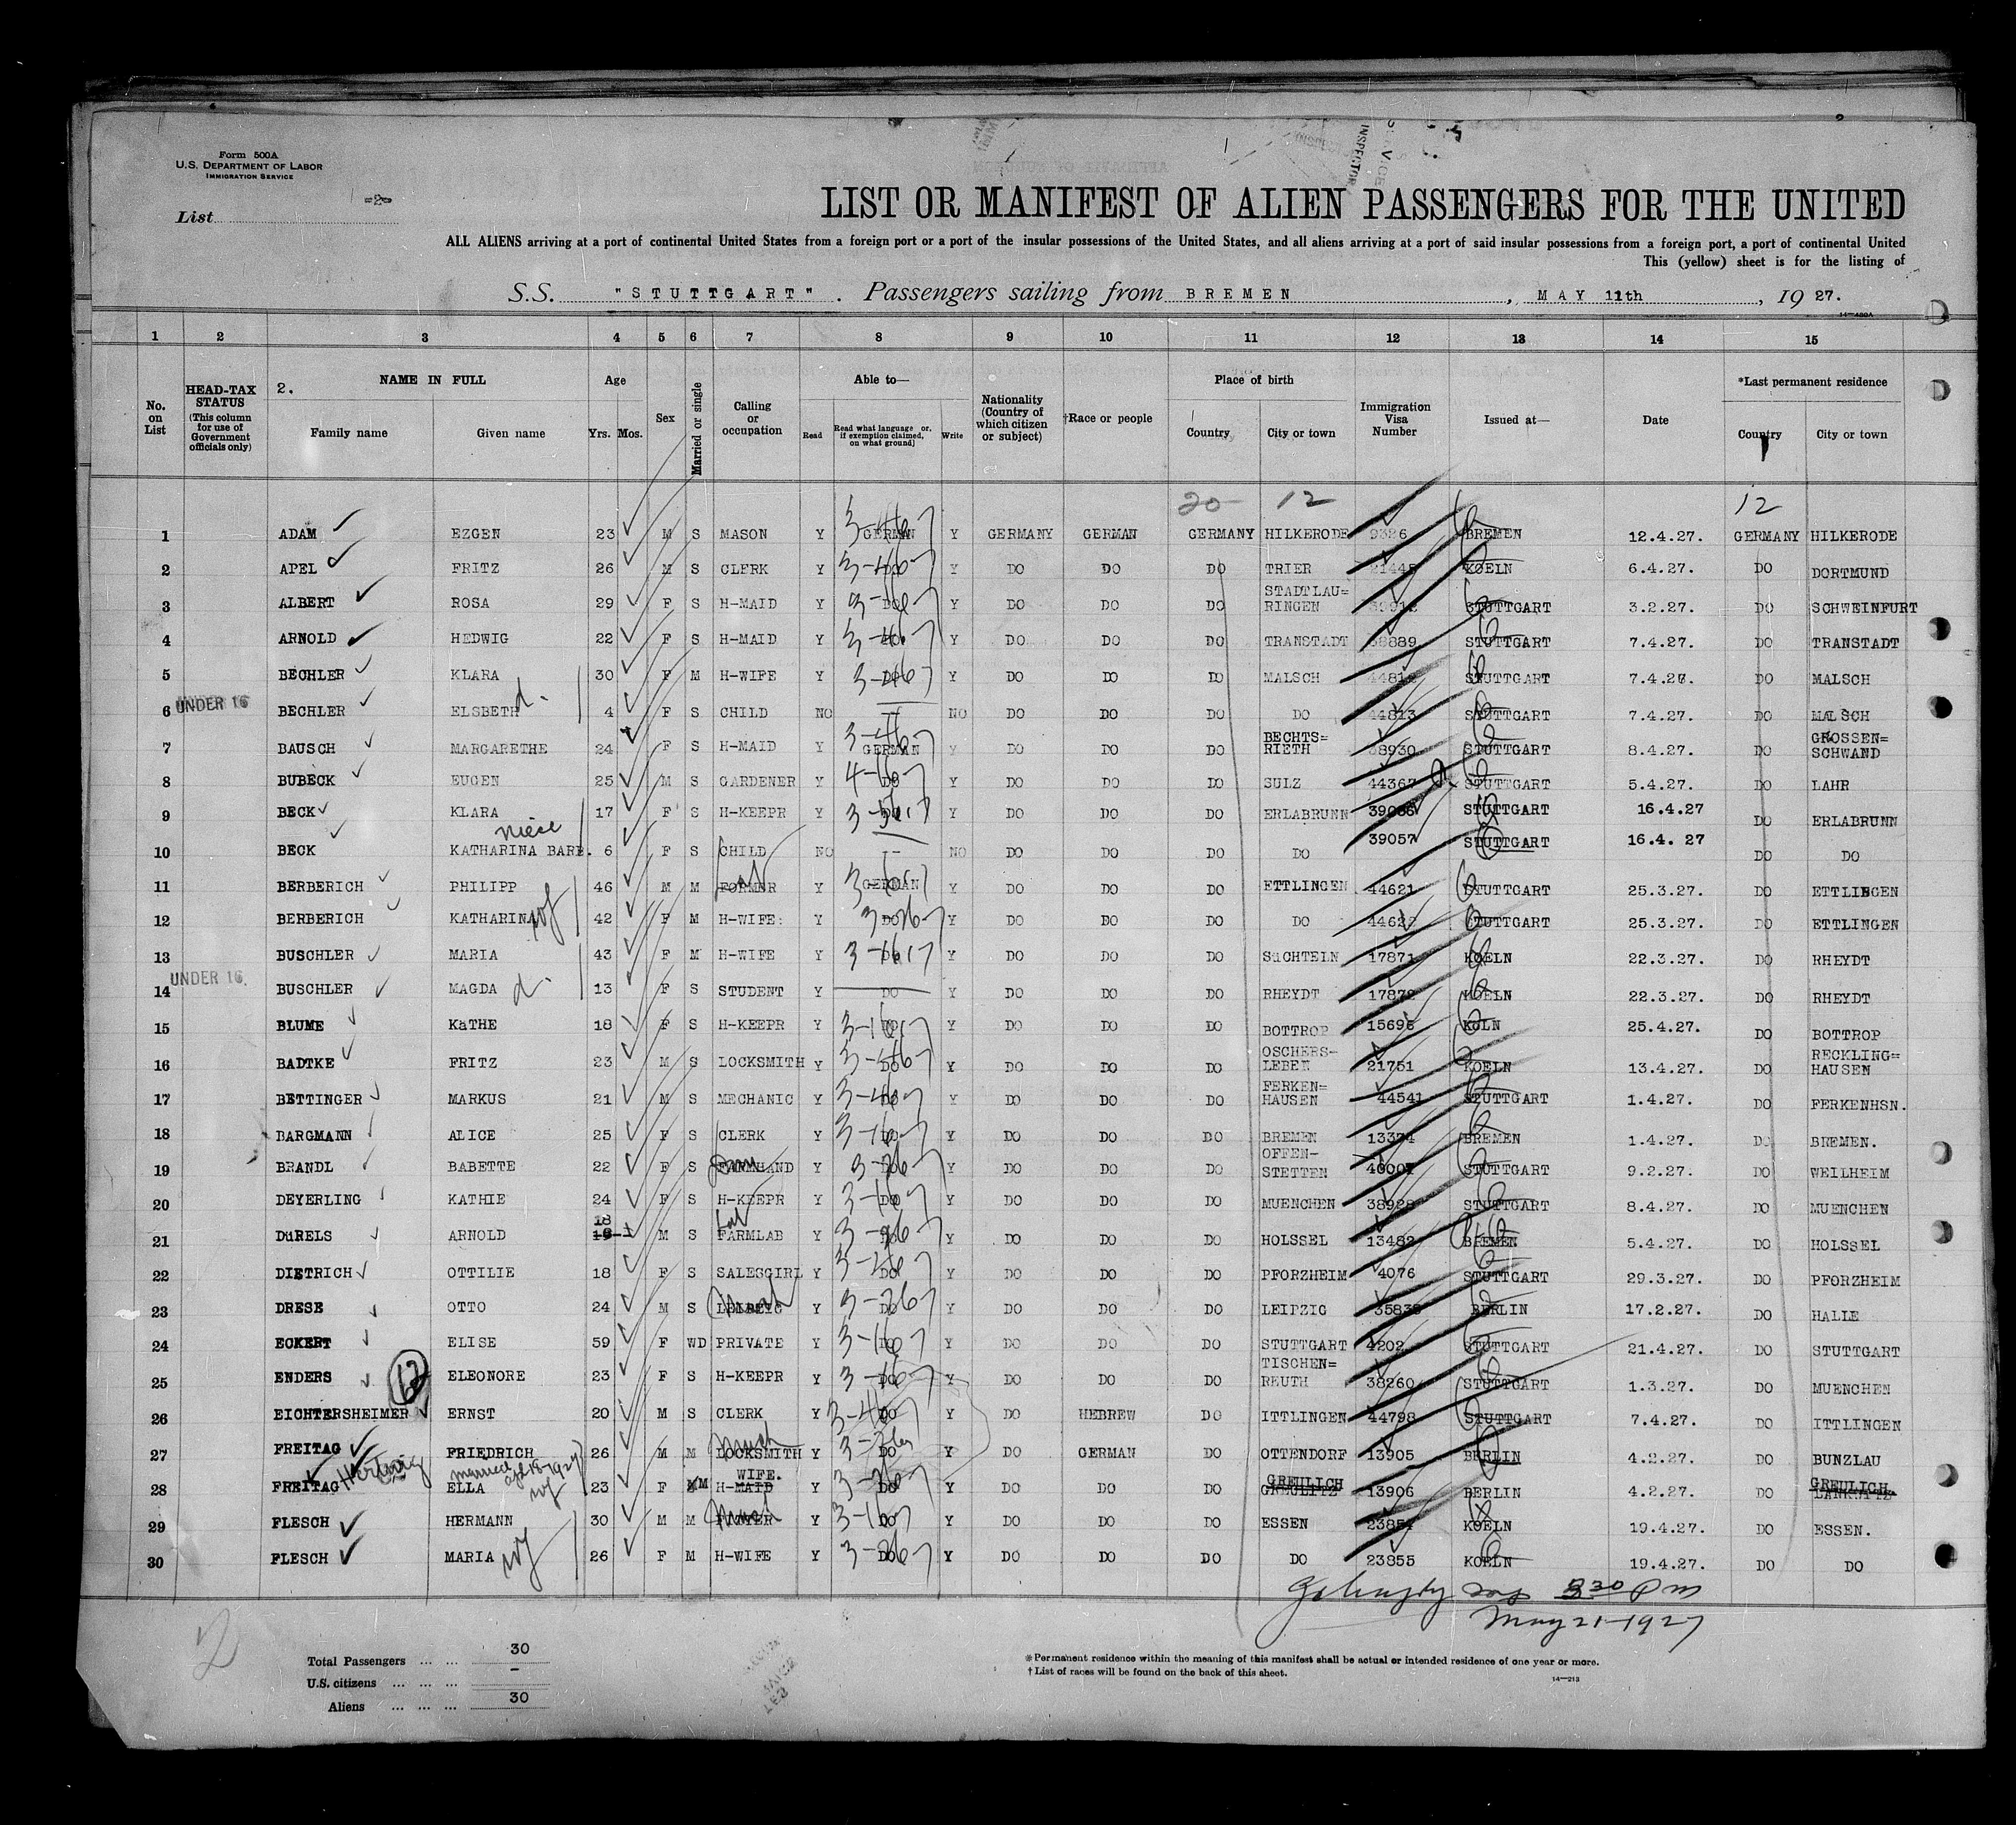 Form 500A
U.S. DEPARTMENT OF LABOR
IMMIGRATION SERVICE
List -2-
LIST OR MANIFEST OF ALIEN PASSENGERS FOR THE UNITED
ALL ALIENS arriving at a port of continental United States from a foreign port or a port of the insular possessions of the United States, and all aliens arriving at a port of said insular possessions from a foreign port, a port of continental United
This (yellow) sheet is for the listing of
S.S. "STUTTGART". Passengers sailing from BREMEN, MAY 11th, 1927.
14—480A
1 2 3 4 5 6 7 8 9 10 11 12 13 14 15
No. on List
HEAD-TAX STATUS (This column for use of Government officials only)
2. NAME IN FULL
Family name Given name
Age
Yrs. Mos.
Sex
Married or single
Calling or occupation
Able to—
Read
Read what language or, if exemption claimed, on what ground)
Write
Nationality (Country of which citizen or subject)
†Race or people
Place of birth
Country City or town
Immigration Visa Number
Issued at—
Date
*Last permanent residence
Country City or town
20 12 12
1 ADAM EZGEN 23 M S MASON Y GERMAN Y GERMANY GERMAN GERMANY HILKERODE 9326 BREMEN 12.4.27. GERMANY HILKERODE
2 APEL FRITZ 26 M S CLERK Y Y DO DO DO TRIER KOELN 6.4.27. DO DORTMUND
3 ALBERT ROSA 29 F S H-MAID Y DO Y DO DO DO STADTLAU=RINGEN STUTTGART 3.2.27. DO SCHWEINFURT
4 ARNOLD HEDWIG 22 F S H-MAID Y Y DO DO DO TRANSTADT STUTTGART 7.4.27. DO TRANSTADT
5 BECHLER KLARA 30 F M H-WIFE Y DO Y DO DO DO MALSCH STUTTGART 7.4.27. DO MALSCH
UNDER 16
6 BECHLER ELSBETH d. 4 F S CHILD NO -- NO DO DO DO DO 44813 STUTTGART 7.4.27. DO MALSCH
7 BAUSCH MARGARETHE 24 F S H-MAID Y GERMAN Y DO DO DO BECHTS=RIETH STUTTGART 8.4.27. DO GROSSEN=SCHWAND
8 BUBECK EUGEN 25 M S GARDENER Y DO Y DO DO DO SULZ 44367 STUTTGART 5.4.27. DO LAHR
9 BECK KLARA 17 F S H-KEEPR Y Y DO DO DO ERLABRUNN STUTTGART 16.4.27 DO ERLABRUNN
niece
10 BECK KATHARINA BARB. 6 F S CHILD NO -- NO DO DO DO DO 39057 STUTTGART 16.4. 27 DO DO
11 BERBERICH PHILIPP 46 M M Y GERMAN Y DO DO DO ETTLINGEN 44621 STUTTGART 25.3.27. DO ETTLINGEN
12 BERBERICH KATHARINA wf 42 F M H-WIFE: Y DO Y DO DO DO DO 44622 STUTTGART 25.3.27. DO ETTLINGEN
13 BUSCHLER MARIA 43 F M H-WIFE Y DO Y DO DO DO SüCHTELN 17871 KOELN 22.3.27. DO RHEYDT
UNDER 16.
14 BUSCHLER MAGDA d. 13 F S STUDENT Y DO Y DO DO DO RHEYDT 17872 KOELN 22.3.27. DO RHEYDT
15 BLUME KäTHE 18 F S H-KEEPR Y DO Y DO DO DO BOTTROP 15695 KOLN 25.4.27. DO BOTTROP
16 BADTKE FRITZ 23 M S LOCKSMITH Y DO Y DO DO DO OSCHERS-LEBEN 21751 KOELN 13.4.27. DO RECKLING=HAUSEN
17 BETTINGER MARKUS 21 M S MECHANIC Y DO Y DO DO DO FERKEN=HAUSEN 44541 STUTTGART 1.4.27. DO FERKENHSN.
18 BARGMANN ALICE 25 F S CLERK Y DO Y DO DO DO BREMEN 13374 BREMEN 1.4.27. DO BREMEN.
19 BRANDL BABETTE 22 F S FARMHAND Y DO Y DO DO DO OFFEN-STETTEN 40007 STUTTGART 9.2.27. DO WEILHEIM
20 DEYERLING KATHIE 24 F S H-KEEPR Y DO Y DO DO DO MUENCHEN 38928 STUTTGART 8.4.27. DO MUENCHEN
21 DüRELS ARNOLD 18 M S FARMLAB Y DO Y DO DO DO HOLSSEL 13482 BREMEN 5.4.27. DO HOLSSEL
22 DIETRICH OTTILIE 18 F S SALESGIRL Y DO Y DO DO DO PFORZHEIM 4076 STUTTGART 29.3.27. DO PFORZHEIM
23 DRESE OTTO 24 M S Y DO Y DO DO DO LEIPZIG 35835 BERLIN 17.2.27. DO HALLE
24 ECKERT ELISE 59 F WD PRIVATE Y DO Y DO DO DO STUTTGART 4202 STUTTGART 21.4.27. DO STUTTGART
25 ENDERS ELEONORE 23 F S H-KEEPR Y DO Y DO DO DO TISCHEN=REUTH 38260 STUTTGART 1.3.27. DO MUENCHEN
26 EICHTERSHEIMER ERNST 20 M S CLERK Y DO Y DO HEBREW DO ITTLINGEN 44798 STUTTGART 7.4.27. DO ITTLINGEN
27 FREITAG FRIEDRICH 26 M M LOCKSMITH Y DO Y DO GERMAN DO OTTENDORF 13905 BERLIN 4.2.27. DO BUNZLAU
married apl 18-1927 wf
28 FREITAG ELLA 23 F M H-MAID WIFE. Y DO Y DO DO DO GREULICH 13906 BERLIN 4.2.27. DO GREULICH
29 FLESCH HERMANN 30 M M Y DO Y DO DO DO ESSEN 23854 KOELN 19.4.27. DO ESSEN.
30 FLESCH MARIA wf 26 F M H-WIFE Y DO Y DO DO DO DO 23855 KOELN 19.4.27. DO DO
3 30 P m
May 21-1927
2
Total Passengers ... ... 30
U.S. citizens ... ... ... -
Aliens ... ... ... 30
* Permanent residence within the meaning of this manifest shall be actual or intended residence of one year or more.
† List of races will be found on the back of this sheet.
14—213